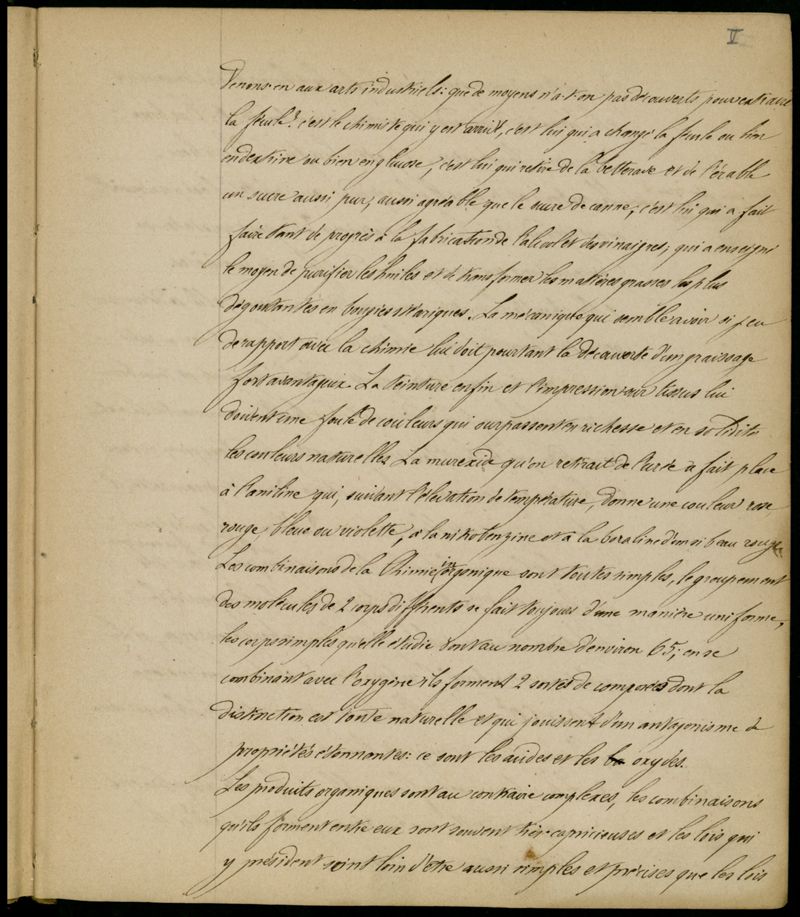 V
Venons-en aux arts industriels: que de moyens n'a-t-on pas découverts pour extraire
la fécule? c'est le chimiste qui y est arrivé, c'est lui qui a changé la fécule ou bien
en dextrine ou bien en glucose, c'est lui qui retire de la betterave et de l'érable
un sucre aussi pur, aussi agréable que le sucre de canne; c'est lui qui a fait
faire tant de progrès à la fabrication de l'alcool et des vinaigres; qui a enseigné
le moyen de purifier les huiles et de transformer les matières grasses les plus
dégoutantes en bougies stéariques. La mécanique qui semble avoir si peu
de rapport avec la chimie lui doit pourtant la découverte d'un graissage
fort avantageux. La teinture enfin et l'impression sur tissus lui
doivent une foule de couleurs qui surpassent en richesse et en solidité
les couleurs naturelles. La murexide qu'on retrait de l'urée a fait place
à l'aniline qui, suivant l'élévation de température, donne une couleur rose
rouge, bleue ou violette, à la nitrobenzine et à la coraline d'un si beau rouge.
Les combinaisons de la Chimie inorganique sont toutes simples, le groupement
des molécules de 2 corps différents se fait toujours d'une manière uniforme,
les corps simples qu'elle étudie sont au nombre d'environ 65; en se
combinant avec l'oxygène ils forment 2 sortes de composés dont la
distinction est toute naturelle et qui jouissent d'un antagonisme de
propriétés étonnantes: ce sont les acides et les oxydes.
Les produits organiques sont au contraire complexes, les combinaisons
qu'ils forment entre eux sont souvent très capricieuses et les lois qui
y président sont loin d'être aussi simples et précises que les lois